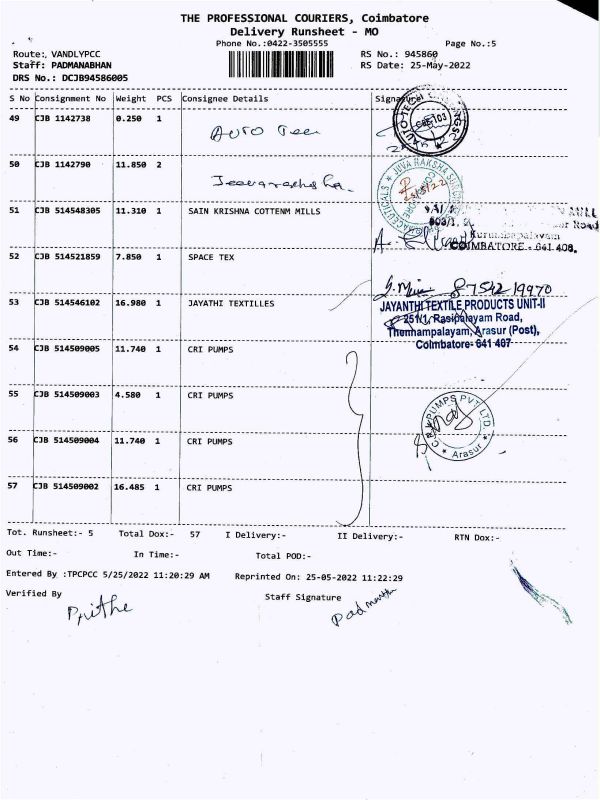 THE PROFESSIONAL COURIERS, Coimbatore
Delivery Runsheet - MO
Phone No.:0422-3505555 Page No.:5
Route:, VANDLYPCC RS No.: 945860
Staff: PADMANABHAN RS Date: 25-May-2022
DRS No.: DCJB94586005
S No Consignment No Weight PCS Consignee Details Signa
49 CJB 1142738 0.250 1
Auto Tech
50 CJB 1142790 11.850 2
Jeevaraksha.
51 CJB 514548305 11.310 1 SAIN KRISHNA COTTENM MILLS
Kurumbapalayam
COIMBATORE - 641 408.
52 CJB 514521859 7.850 1 SPACE TEX
87542 19970
53 CJB 514546102 16.980 1 JAYATHI TEXTILLES
JAYANTHI TEXTILE PRODUCTS UNIT-II
251/1, Rasipalayam Road,
Thennampalayam, Arasur (Post),
Coimbatore- 641 407
54 CJB 514509005 11.740 1 CRI PUMPS
55 CJB 514509003 4.580 1 CRI PUMPS
PUMPS PVT LTD
★ Arasur ★
56 CJB 514509004 11.740 1 CRI PUMPS
57 CJB 514509002 16.485 1 CRI PUMPS
Tot. Runsheet:- 5 Total Dox:- 57 I Delivery:- II Delivery:- RTN Dox:-
Out Time:- In Time:- Total POD:-
Entered By :TPCPCC 5/25/2022 11:20:29 AM Reprinted On: 25-05-2022 11:22:29
Verified By Staff Signature
Prithe Padmanabh